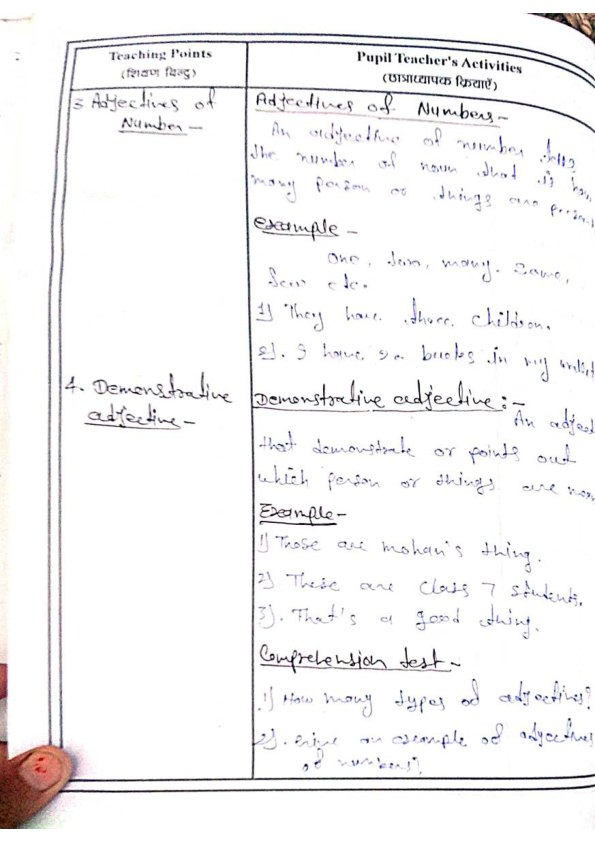 Teaching Points
(शिक्षण बिन्दु)
Pupil Teacher's Activities
(छात्राध्यापक क्रियाएँ)
3 Adjectives of
Number -
Adjectives of Numbers -
An adjective of number tells
the number of noun that is how
many person or things are
Example -
One, many. Some,
etc.
1) They have three children.
2). I have books in my
4. Demonstrative
adjective -
Demonstrative adjective :-
An adject
that demonstrate or points out
which person or things are
Example -
1) Those are mohan's thing.
2) These are class 7 students.
3). That's a good thing.
Comprehension test -
1) How many types of adjectives?
2). an example of adjectives
of numbers?